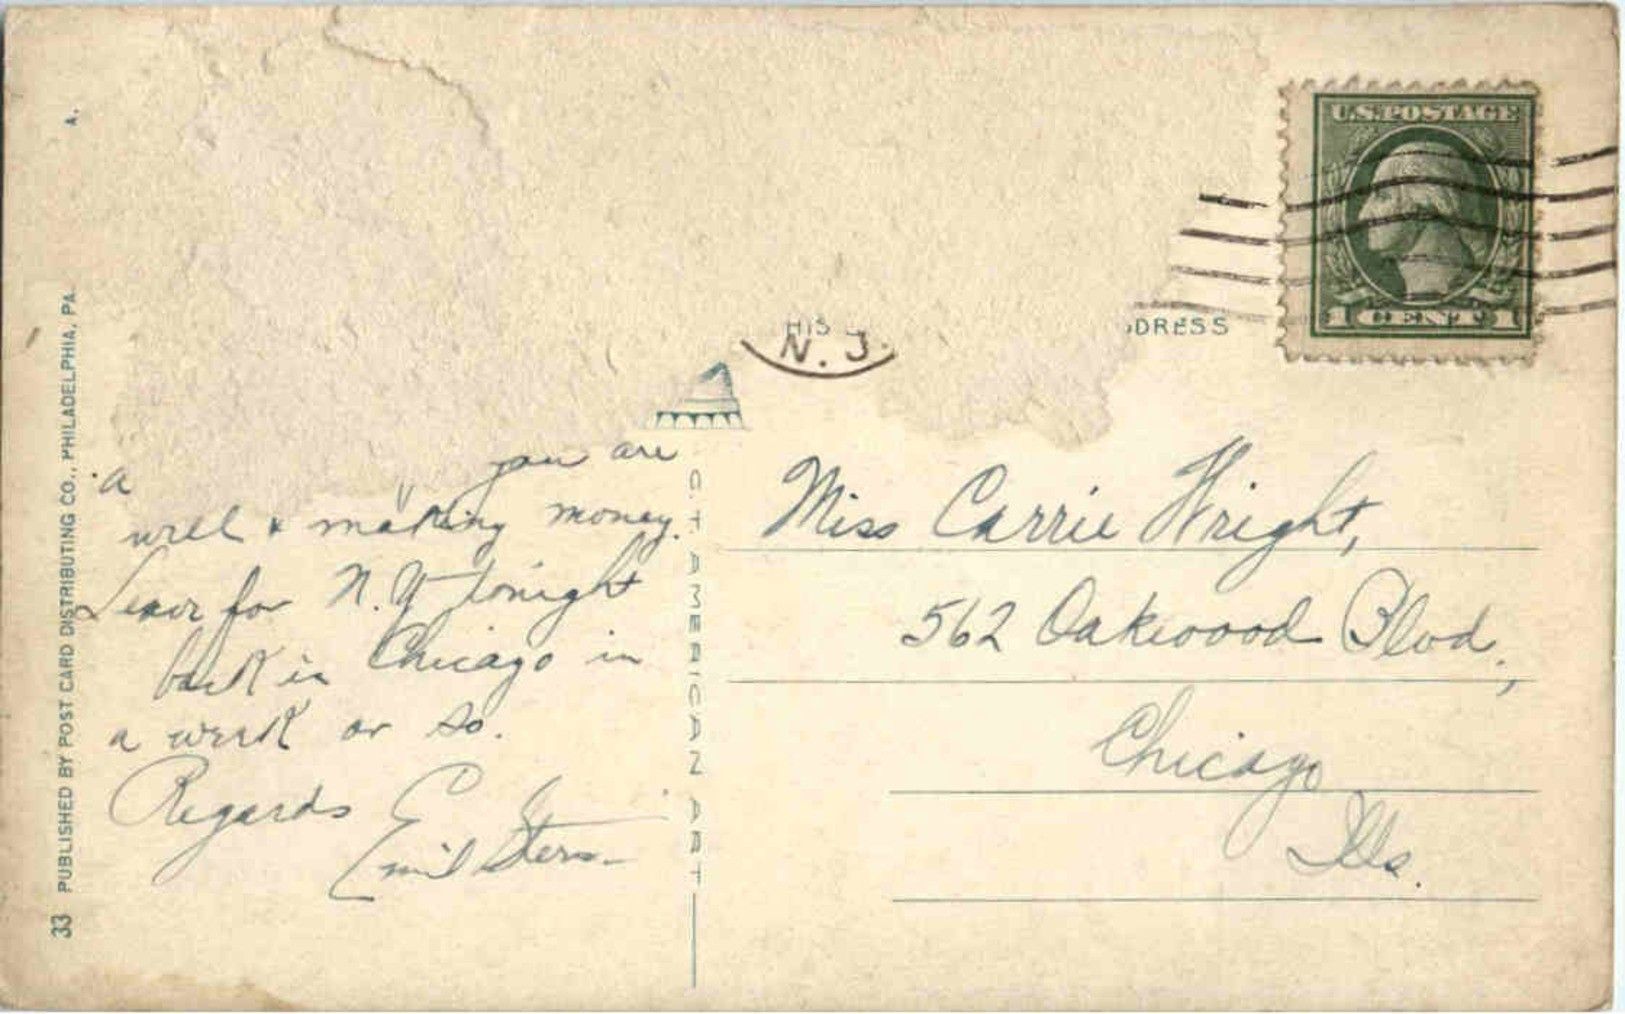 U.S. POSTAGE
1 CENT 1
N. J.
DRESS
A.
33 PUBLISHED BY POST CARD DISTRIBUTING CO., PHILADELPHIA, PA.
C. T. AMERICAN ART
a you are
well & making money.
Leave for N.Y tonight
back in Chicago in
a week or so.
Regards
Emil Stern
Miss Carrie Wright,
562 Oakwood Blvd.,
Chicago
Ills.